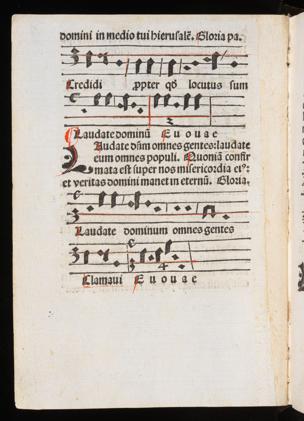 domini in medio tui hierusalē. Gloria pa.
Credidi ꝓpter qd̄ locutus sum
Laudate dominū E u o u a e
Laudate dn̄m omnes gentes: laudate
eum omnes populi. Quoniā confir
mata est super nos misericordia eiꝰ:
et veritas domini manet in eternū. Gloria.
Laudate dominum omnes gentes
Clamaui E u o u a e